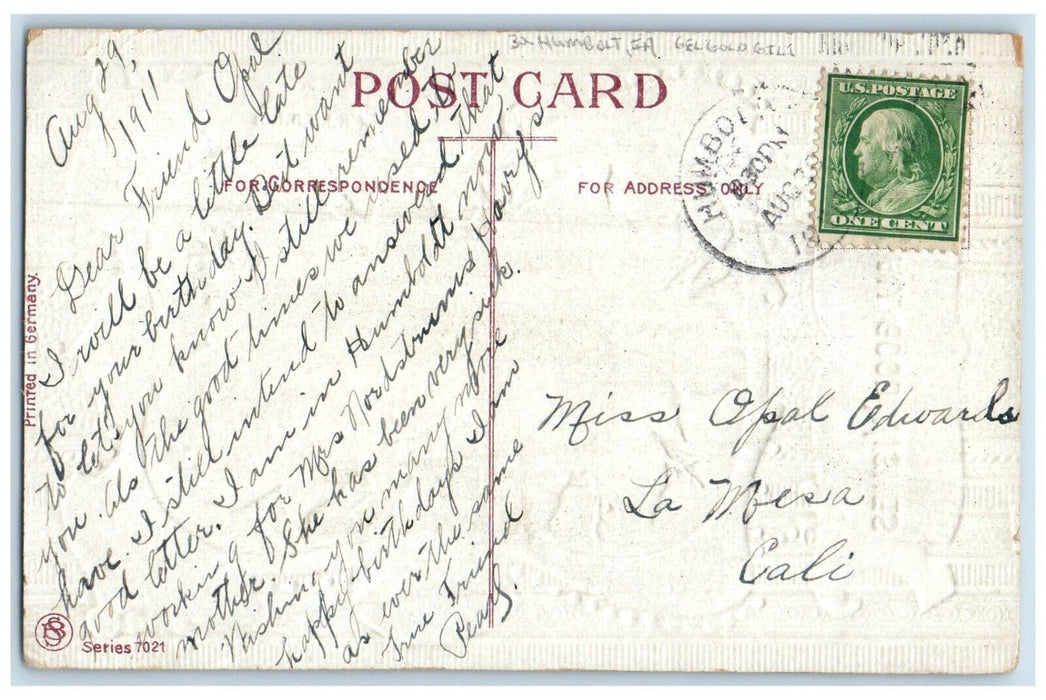 32 HUMBOLT, IA GEL GOLD GILT
POST CARD
FOR CORRESPONDENCE
FOR ADDRESS ONLY
Printed in Germany.
Series 7021
U.S. POSTAGE
ONE CENT
HUMBO
230 PM
AUG 30
Aug 29,
1911
Dear Friend Opal
I will be a little late
for your birth day. But want
to let you know I still remember
you. Als the good times we used to
have. I still intend to answered that
good letter. I am in Humboldt now
working for Mrs Nordstrums parys
mother She has been very sick.
Wishing you many more
happy birth days I am
as ever the same
true Friend
Pearl
Miss Opal Edwards
La Mesa
Cali